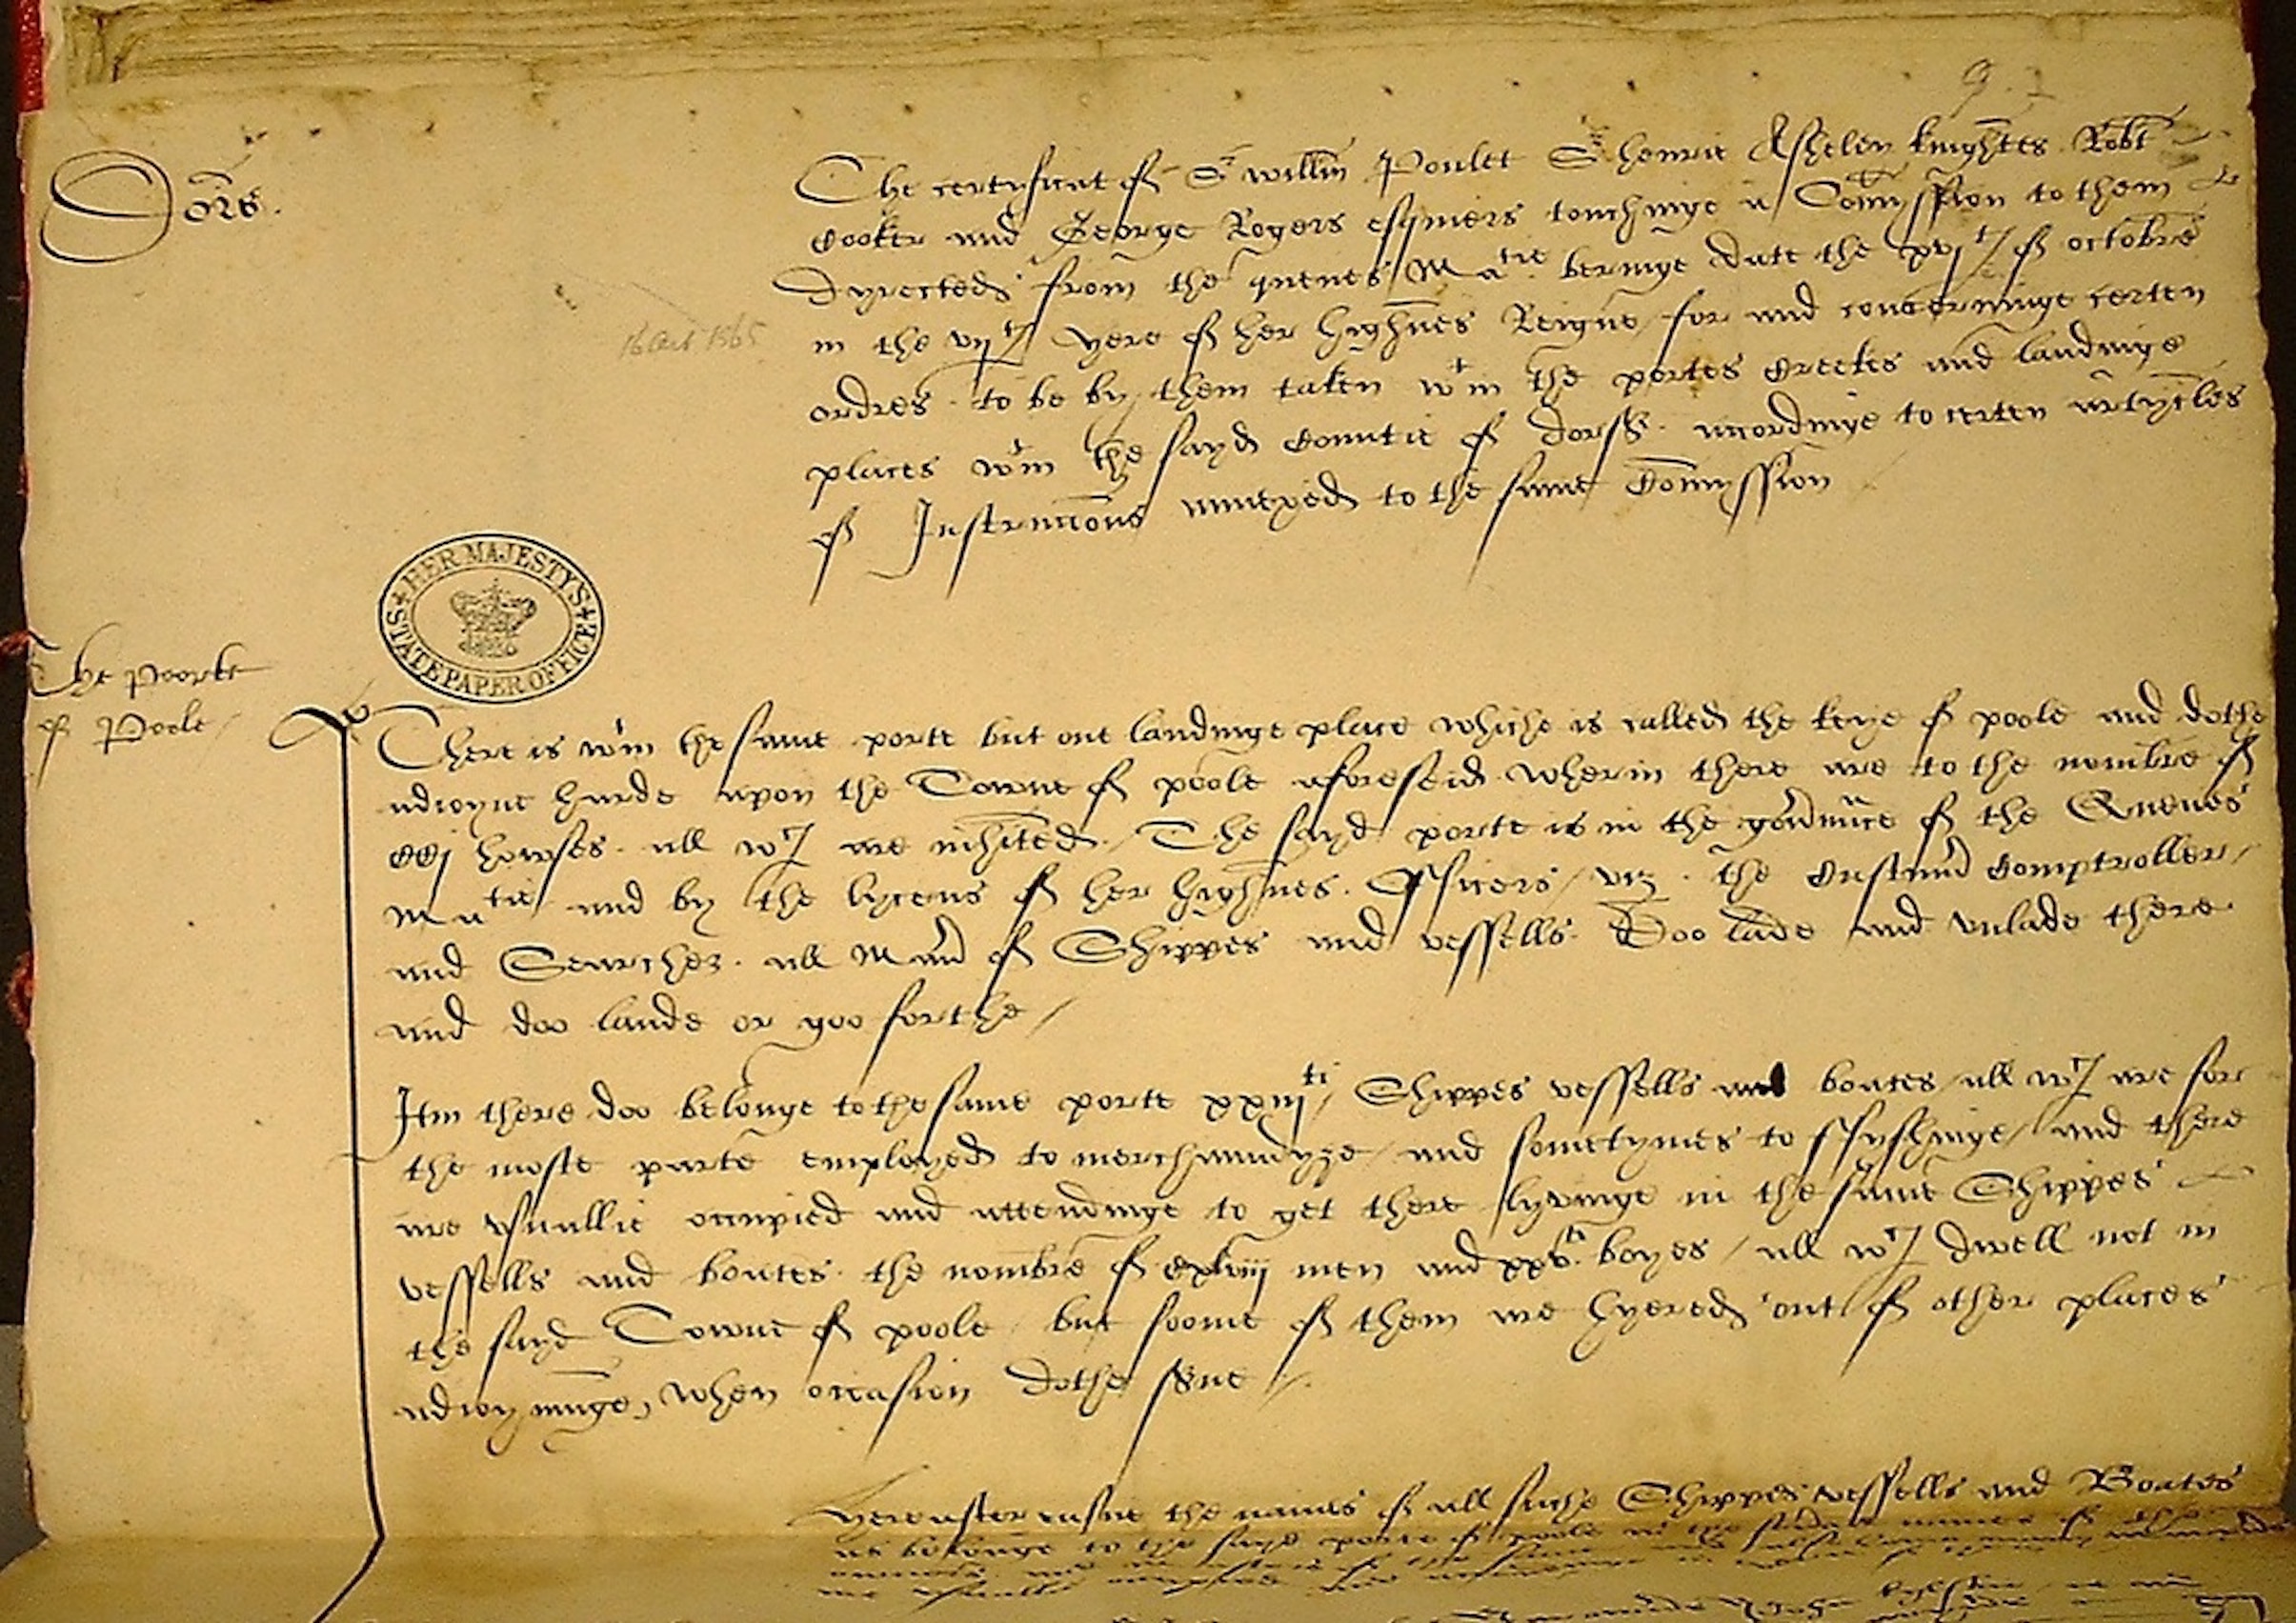 9.
Dors.
The certyficat of Sr willm Poulet Sr henrie Asheley knightes Robt
Cooker and George Rogers esquiers touchinge a Comyssion to them
dyrected from the quenes Matie beringe date the xvjth of octobre
in the vijth yere of her highnes Reigne for and concerninge certen
16 Oct 1565
ordres to be by them taken wtin the portes Creekes and landinge
places wtin the sayd Countie of dorst. accordinge to certen artycles
of Instruccons annexed to the same Comyssion
HER MAJESTY'S STATE PAPER OFFICE
The poorte
of Poole
There is wtin the same porte but one landinge place whiche is called the keye of poole and dothe
adioyne harde upon the Towne of poole aforeseid wherin there are to the nombre of
CCj howses all wch are inhited. The sayd porte is in the gou'nance of the Quenes
Matie and by the lycens of her highnes Officers viz. the Custum' Comptroller
and Searcher. all Man' of Shippes and vessells Doo lade and vnlade there
and doo lande or goo forthe
Itm there doo belonge to the same porte xxiijti Shippes vessells and boates all wch are for
the moste parte employed to merchaundyze and sometymes to ffysshinge and there
are vsuallie occupied and attendinge to get there lyvinge in the same Shippes
vessells and boates the nombre of Cxlviij men and xxvti boyes all wch dwell not in
the sayd Towne of poole but soome of them are hyered out of other places
adioyninge, when occasion dothe s've
Hereafter ensue the names of all suche Shippes vessells and Boates
as belonge to the sayd porte of poole